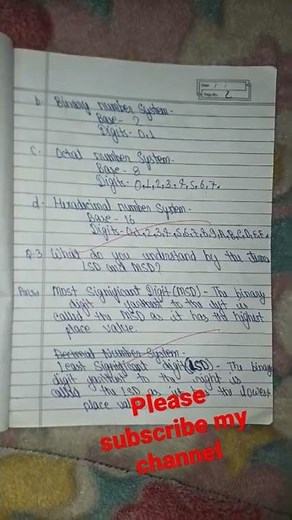 Date / /
Page No. 2
b. Binary number System-
Base- 2
Digits- 0,1
C. Octal number System-
Base- 8
Digits- 0,1,2,3,4,5,6,7.
d- Hexadecimal number System-
Base- 16
Digits- 0,1,2,3,4,5,6,7,8,9,A,B,C,D,E,F.
Q.3 What do you understand by the terms
LSD and MSD?
Most Significant Digit (MSD)- The binary
digit to the left is
called the MSD as it has the highest
place value.
Decimal Number System-
Least Significant Digit (LSD)- The binary
digit to the right is
called the LSD as it has the lowest
place
Please
subscribe my
channel